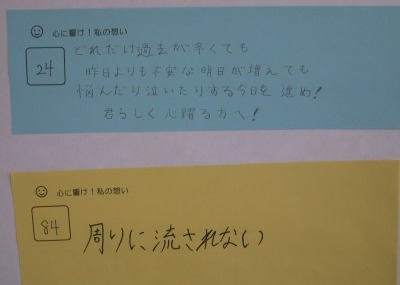 心に響け！私の想い
24
どれだけ過去が辛くても
昨日よりも不安な明日が増えても
悩んだり泣いたりする今日を進め！
君らしく心躍る方へ！
心に響け！私の想い
84
周りに流されない